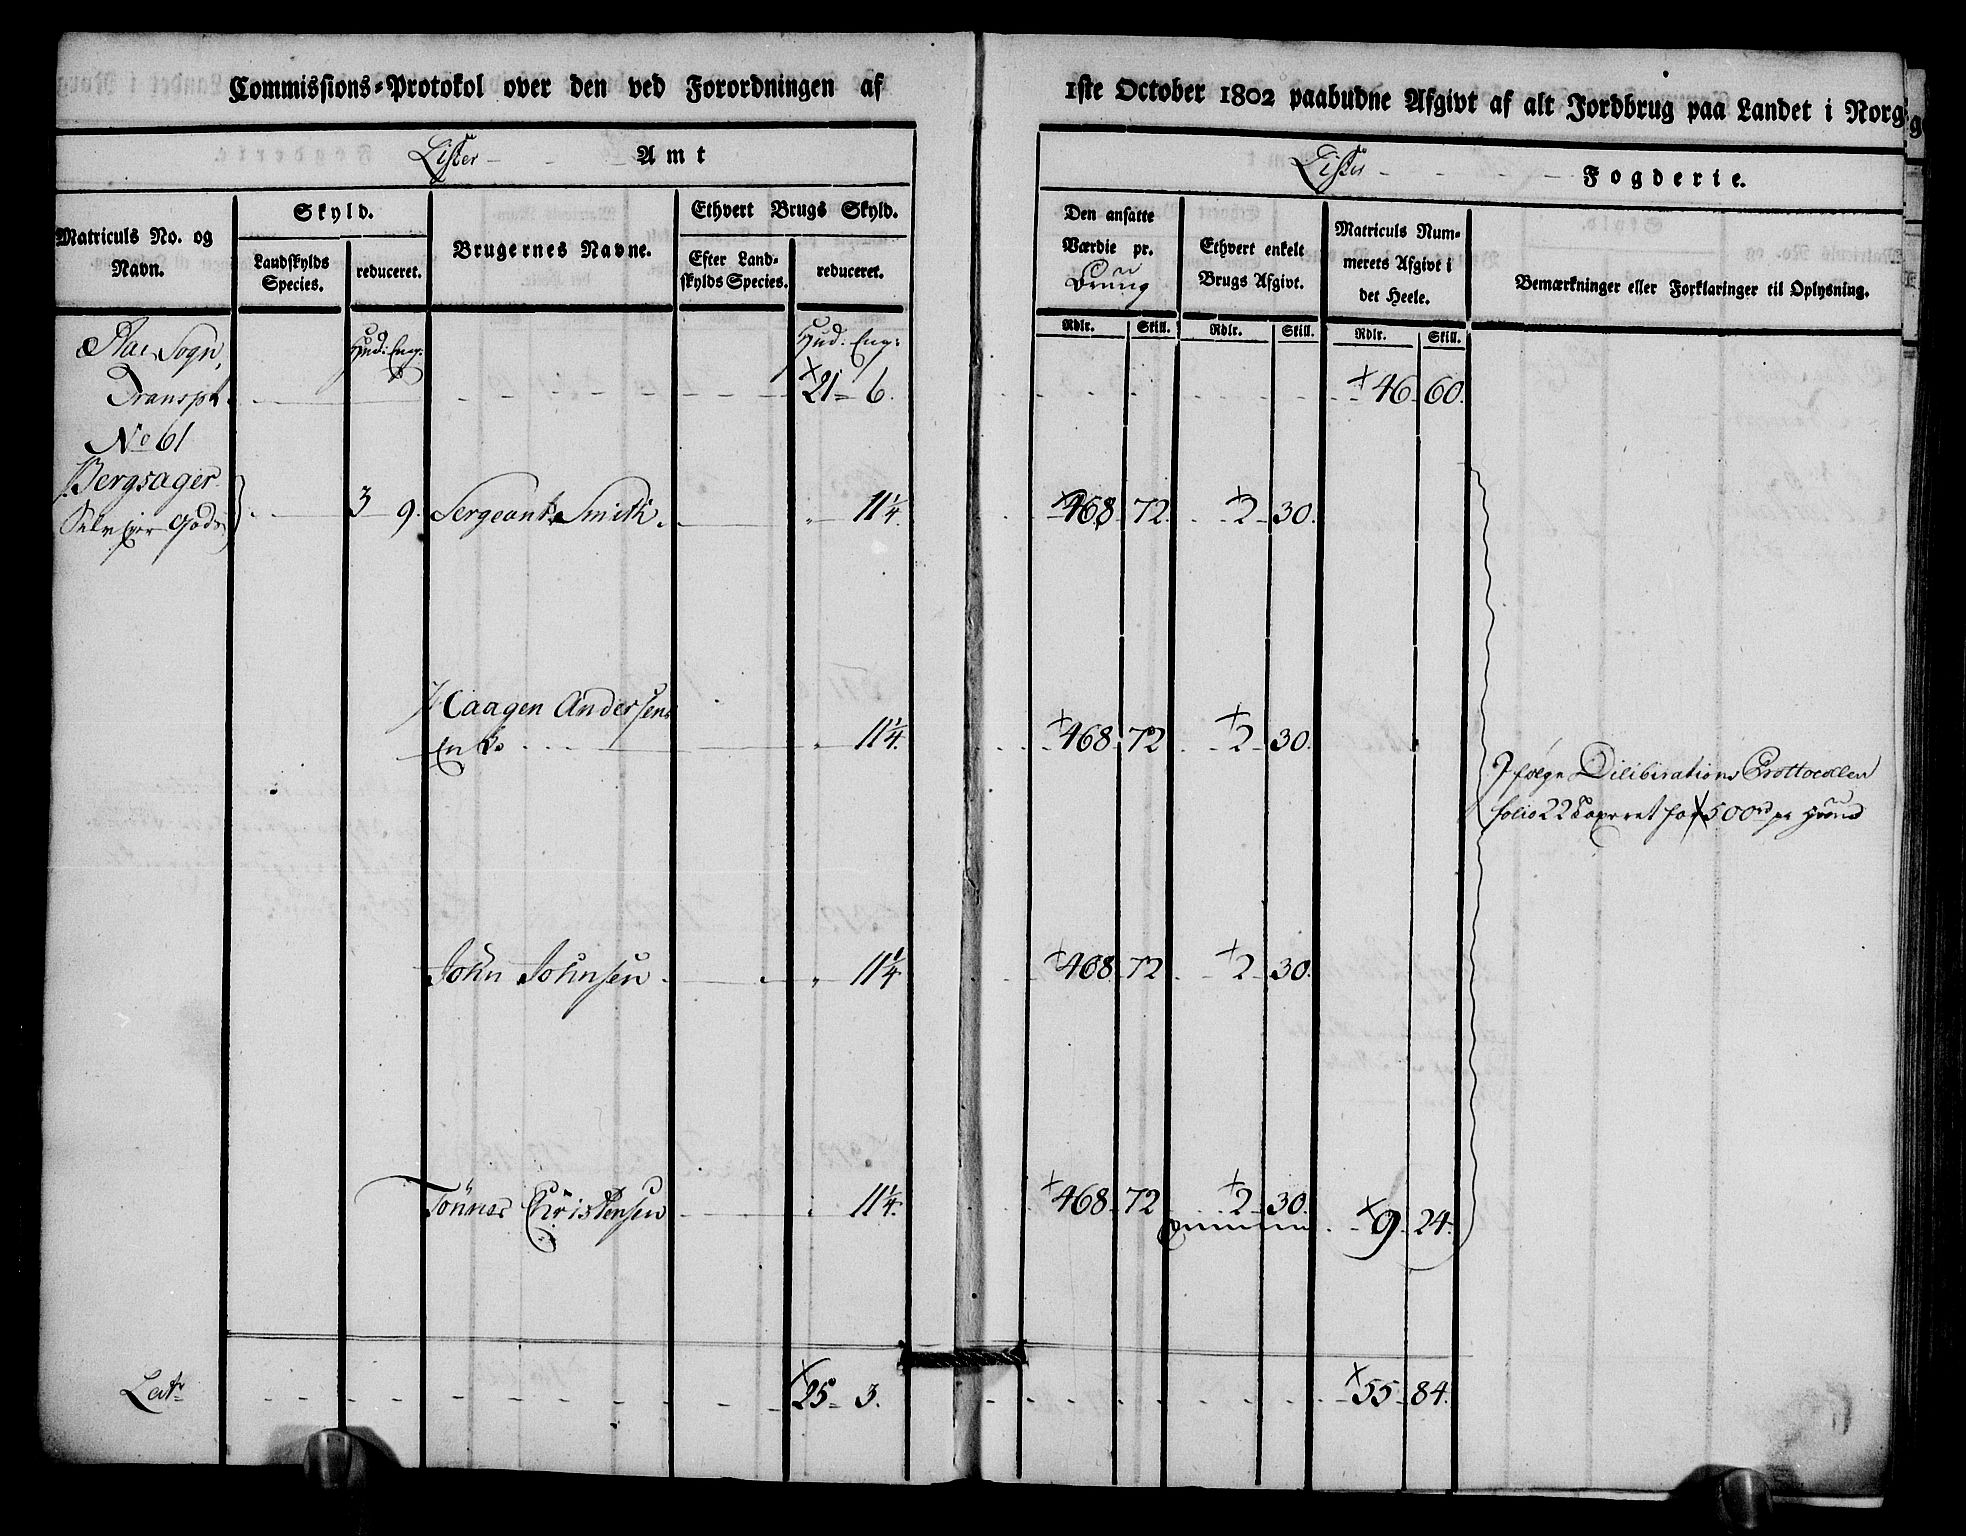 Commissions-Protokol over den ved Forordningen af
1ste October 1802 paabudne Afgivt af alt Jordbrug paa Landet i Norg
Lister Amt
Lister Fogderie.
Matriculs No. og Navn.
Skyld.
Landskylds Species.
reduceret.
Brugernes Navne.
Ethvert Brugs Skyld.
Efter Landskylds Species.
reduceret.
Den ansatte Værdie pr. Brug
Ethvert enkelt Brugs Afgivt.
Matriculs Nummerets Afgivt i det Heele.
Bemærkninger eller Forklaringer til Oplysning.
Rdlr. Skill. Rdlr. Skill. Rdlr. Skill.
Hud: Eng: Hud: Eng:
Sogn,
Transpt. 21 6. 46 60.
No 61
Bergsager
Selv Eier Gods 3 9. Sergeant Smith 11¼. 468 72 2 30.
Haagen Andersens
Enke 11¼. 468 72 2 30.
Ifølge Deliberations Prottocollen
folio 22 Taxeret for 500rd pr Huud
John Johnsen 11¼ 468 72 2 30.
Tönnes Christensen 11¼. 468 72 2 30. 9 24
Latr 25 3. 55 84.